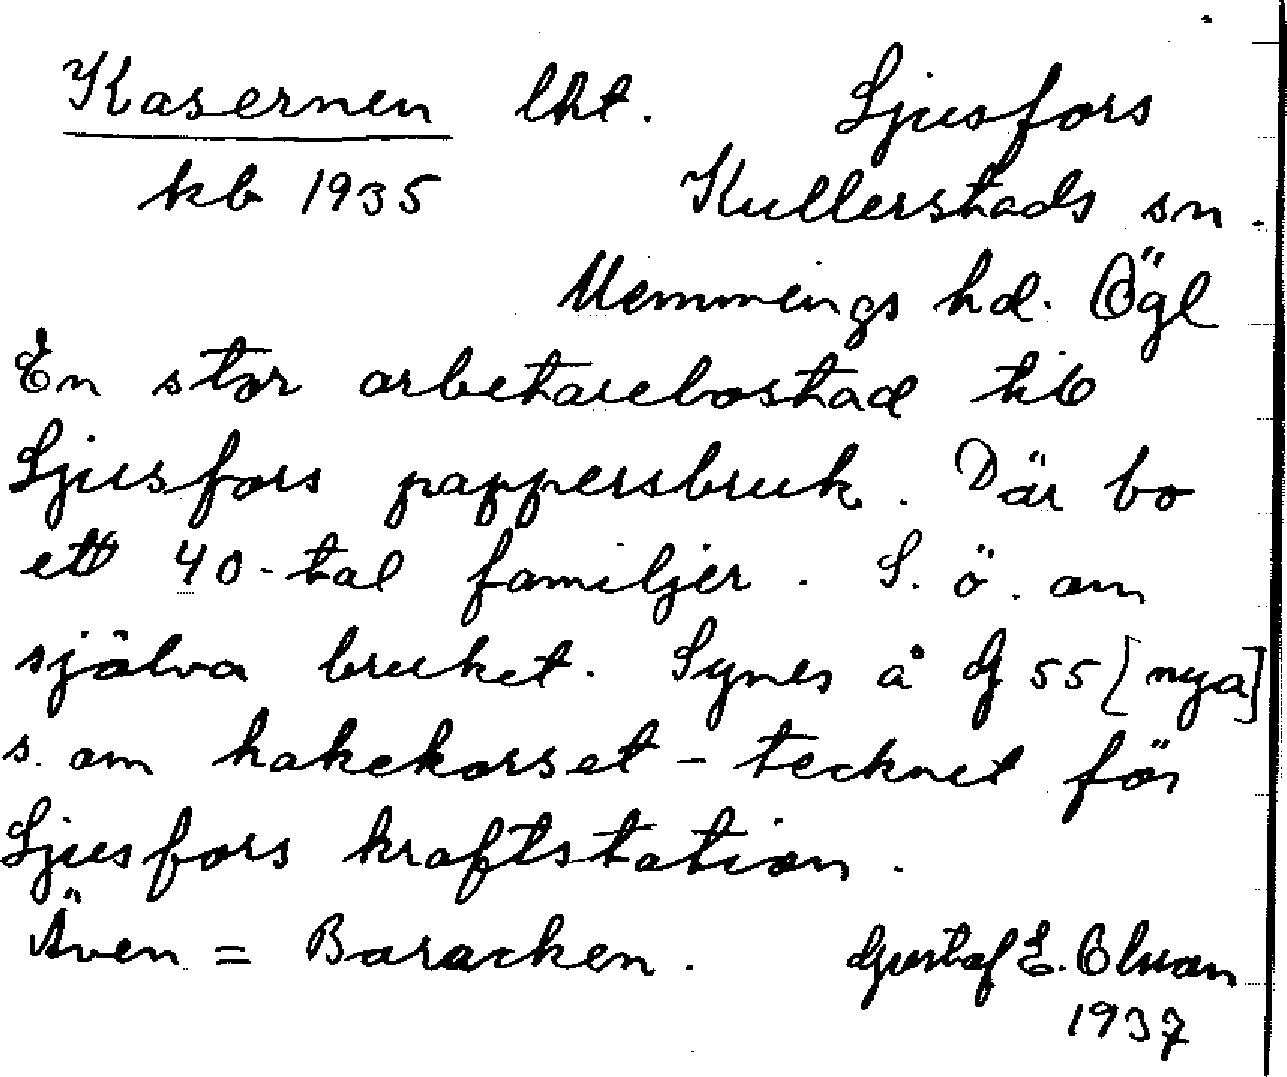 Kasernen lht. Ljusfors
kb 1935 Kullerstads sn.
Memmings hd. Ögl
En stor arbetarebostad till
Ljusfors pappersbruk. Där bo
ett 40-tal familjer. S. ö. om
själva bruket. Synes å G 55 [nya]
s. om hakekorset - tecknet för
Ljusfors kraftstation.
Även = Baracken. Gustaf E. Olsson
1937